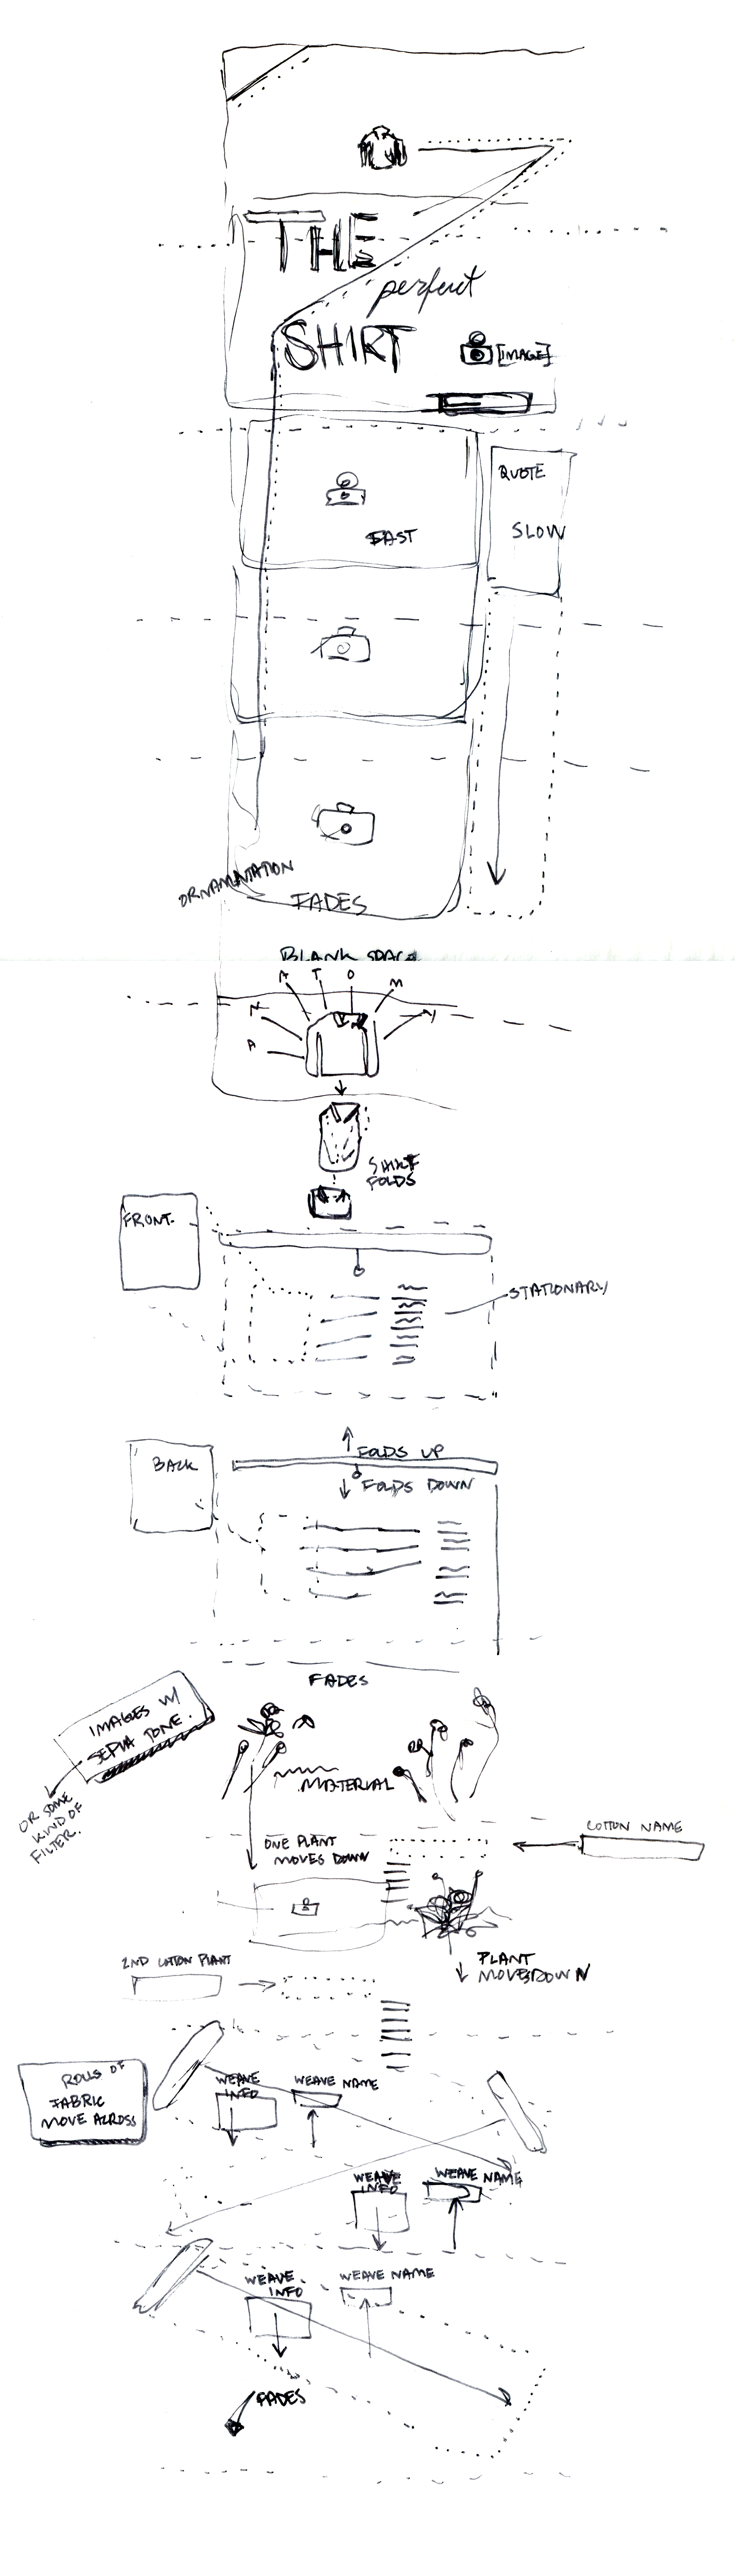 THE
perfect
SHIRT
[IMAGE]
QUOTE
FAST
SLOW
ORNAMNTATION
FADES
BLANK SPACE
A N A T O M Y
SHIRT
FOLDS
FRONT
STATIONARY
FOLDS UP
BACK
FOLDS DOWN
FADES
IMAGES W/
SEPIA TONE.
OR SOME
KIND OF
FILTER.
MATERIAL
COTTON NAME
ONE PLANT
MOVES DOWN
2ND COTTON PLANT
PLANT
MOVES DOWN
ROLLS OF
FABRIC
MOVE ACROSS
WEAVE
INFO
WEAVE NAME
WEAVE
INFO
WEAVE NAME
WEAVE
INFO
WEAVE NAME
FADES